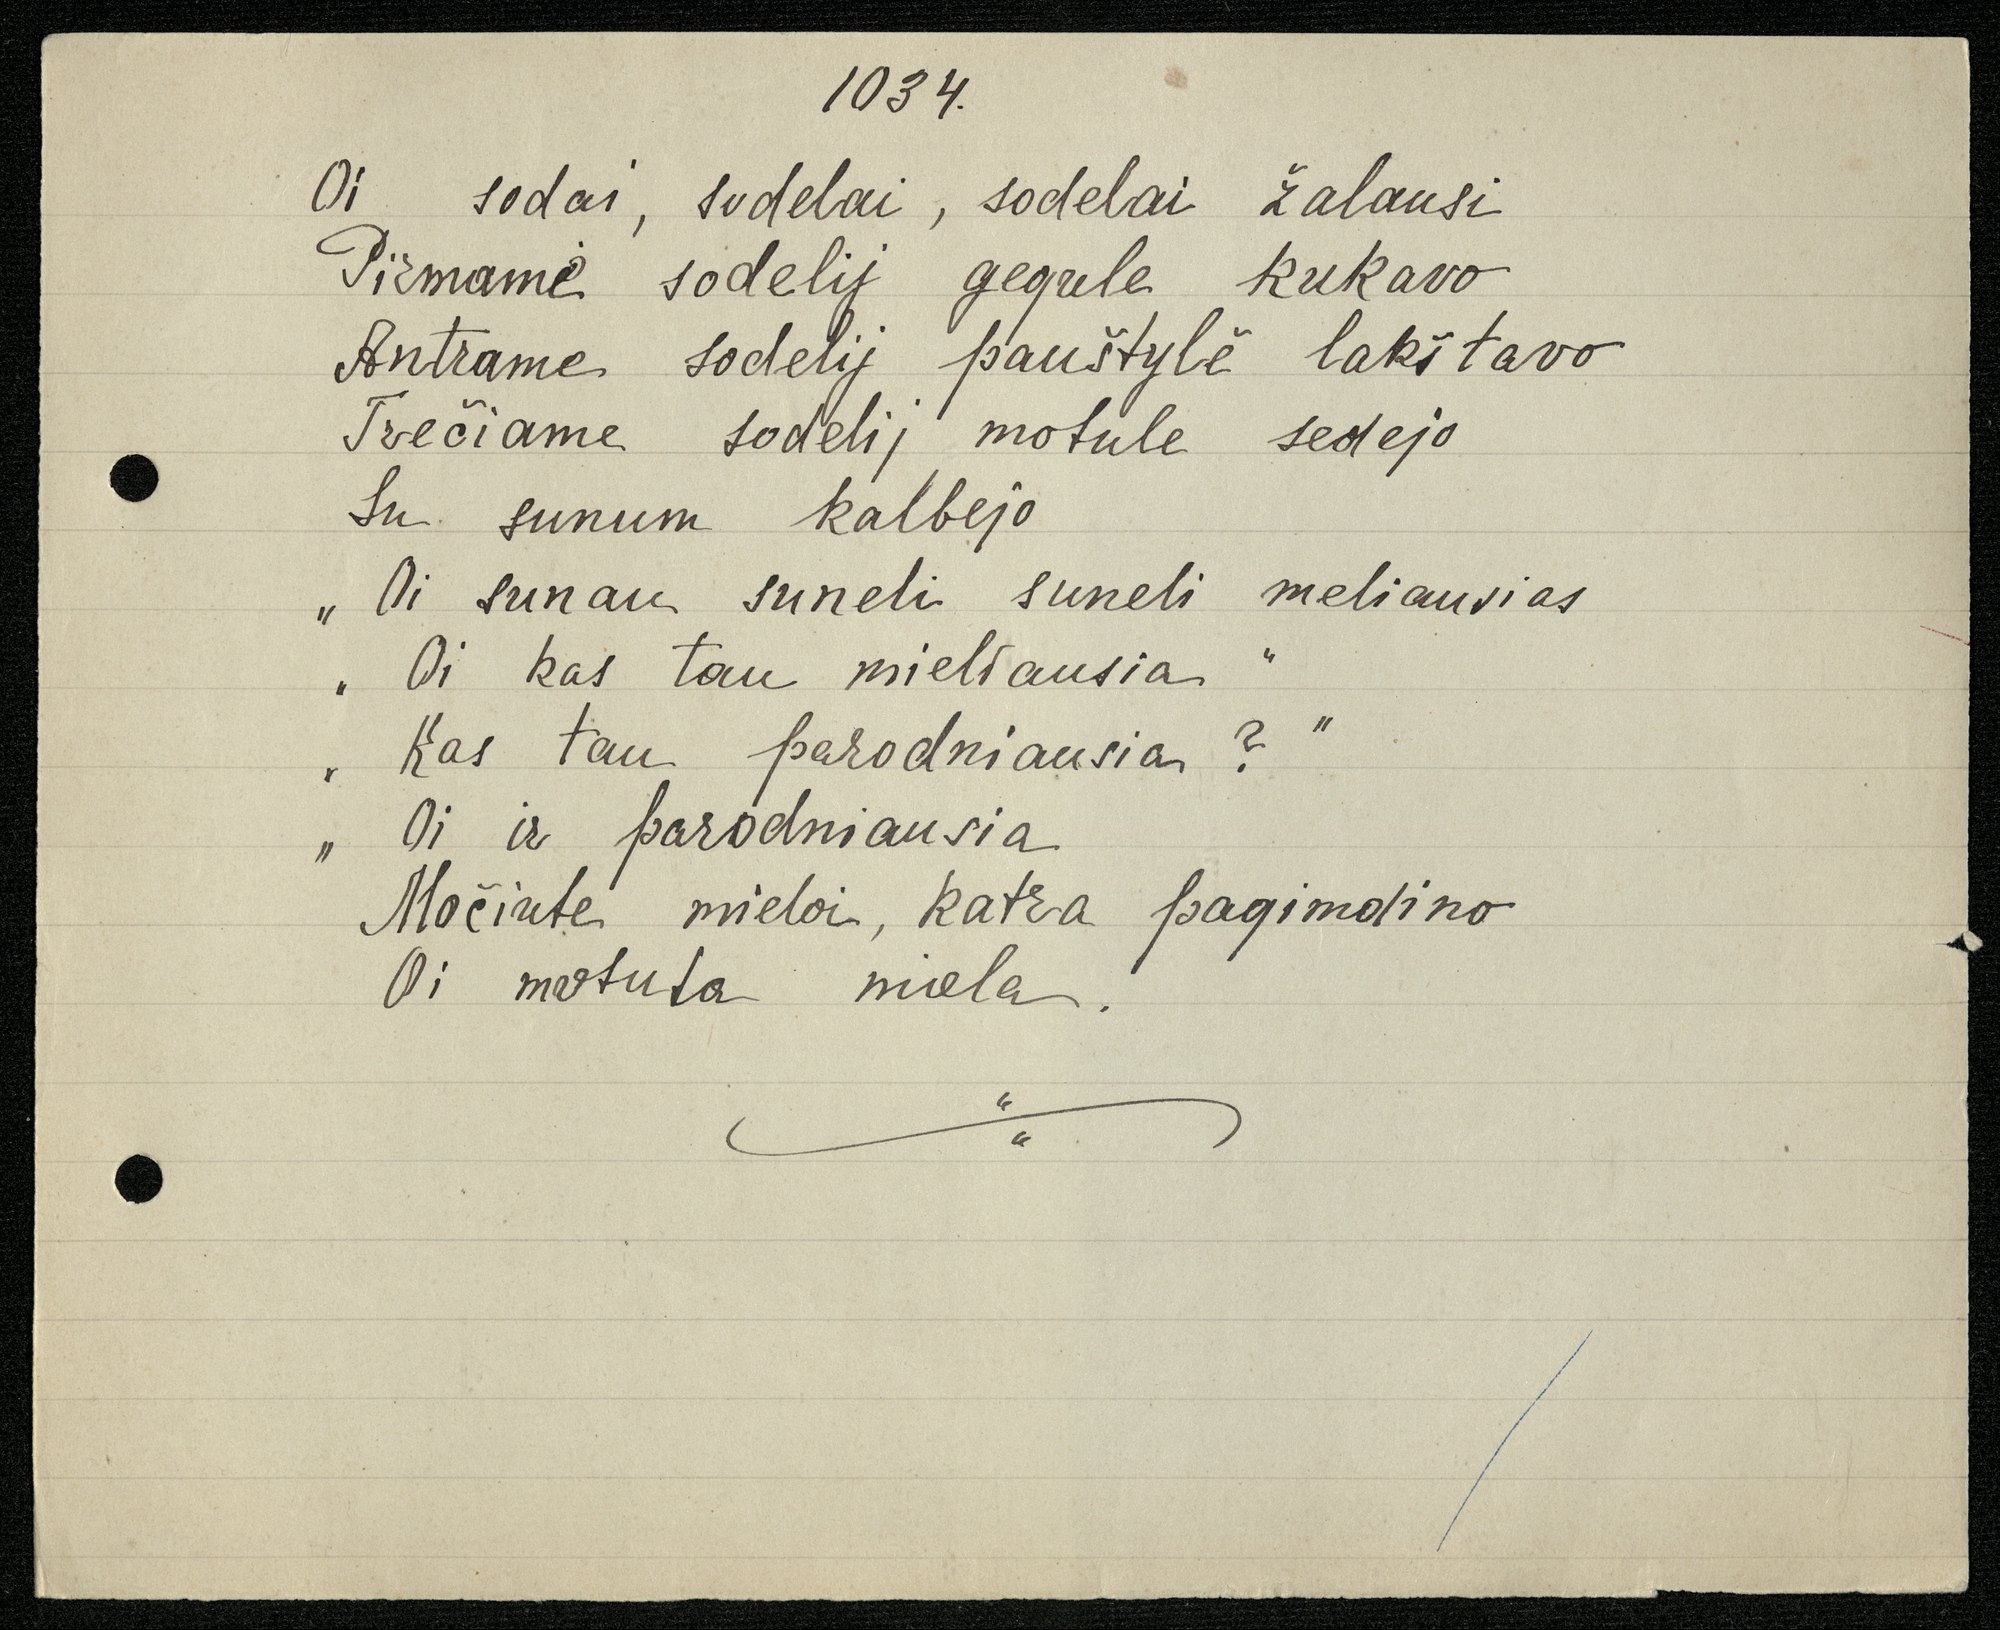 1034.
Oi sodai, sodelai, sodelai žalausi
Pirmamė sodelij gegule kukavo
Antrame sodelij pauštylė lakštavo
Trečiame sodelij motule sedejo
Su sunum kalbejo
„ Oi sunau suneli suneli meliausias
„ Oi kas tau mieliausia “
„ Kas tau parodniausia ? "
„ Oi ir parodniausia
Močiute mieloi, katra pagimdino
Oi motuta miela.